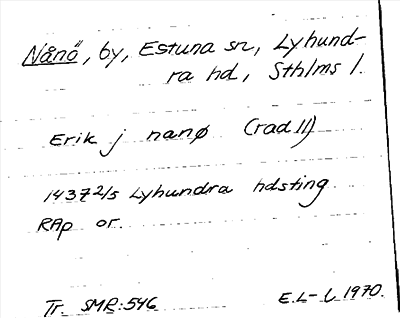 Nånö, by, Estuna sn, Lyhund-
ra hd, Sthlms l.
Erik j nanø (rad 11)
1437 2/5 Lyhundra hdsting
RAp or.
Tr. SMR: 546
E.L-l 1970.